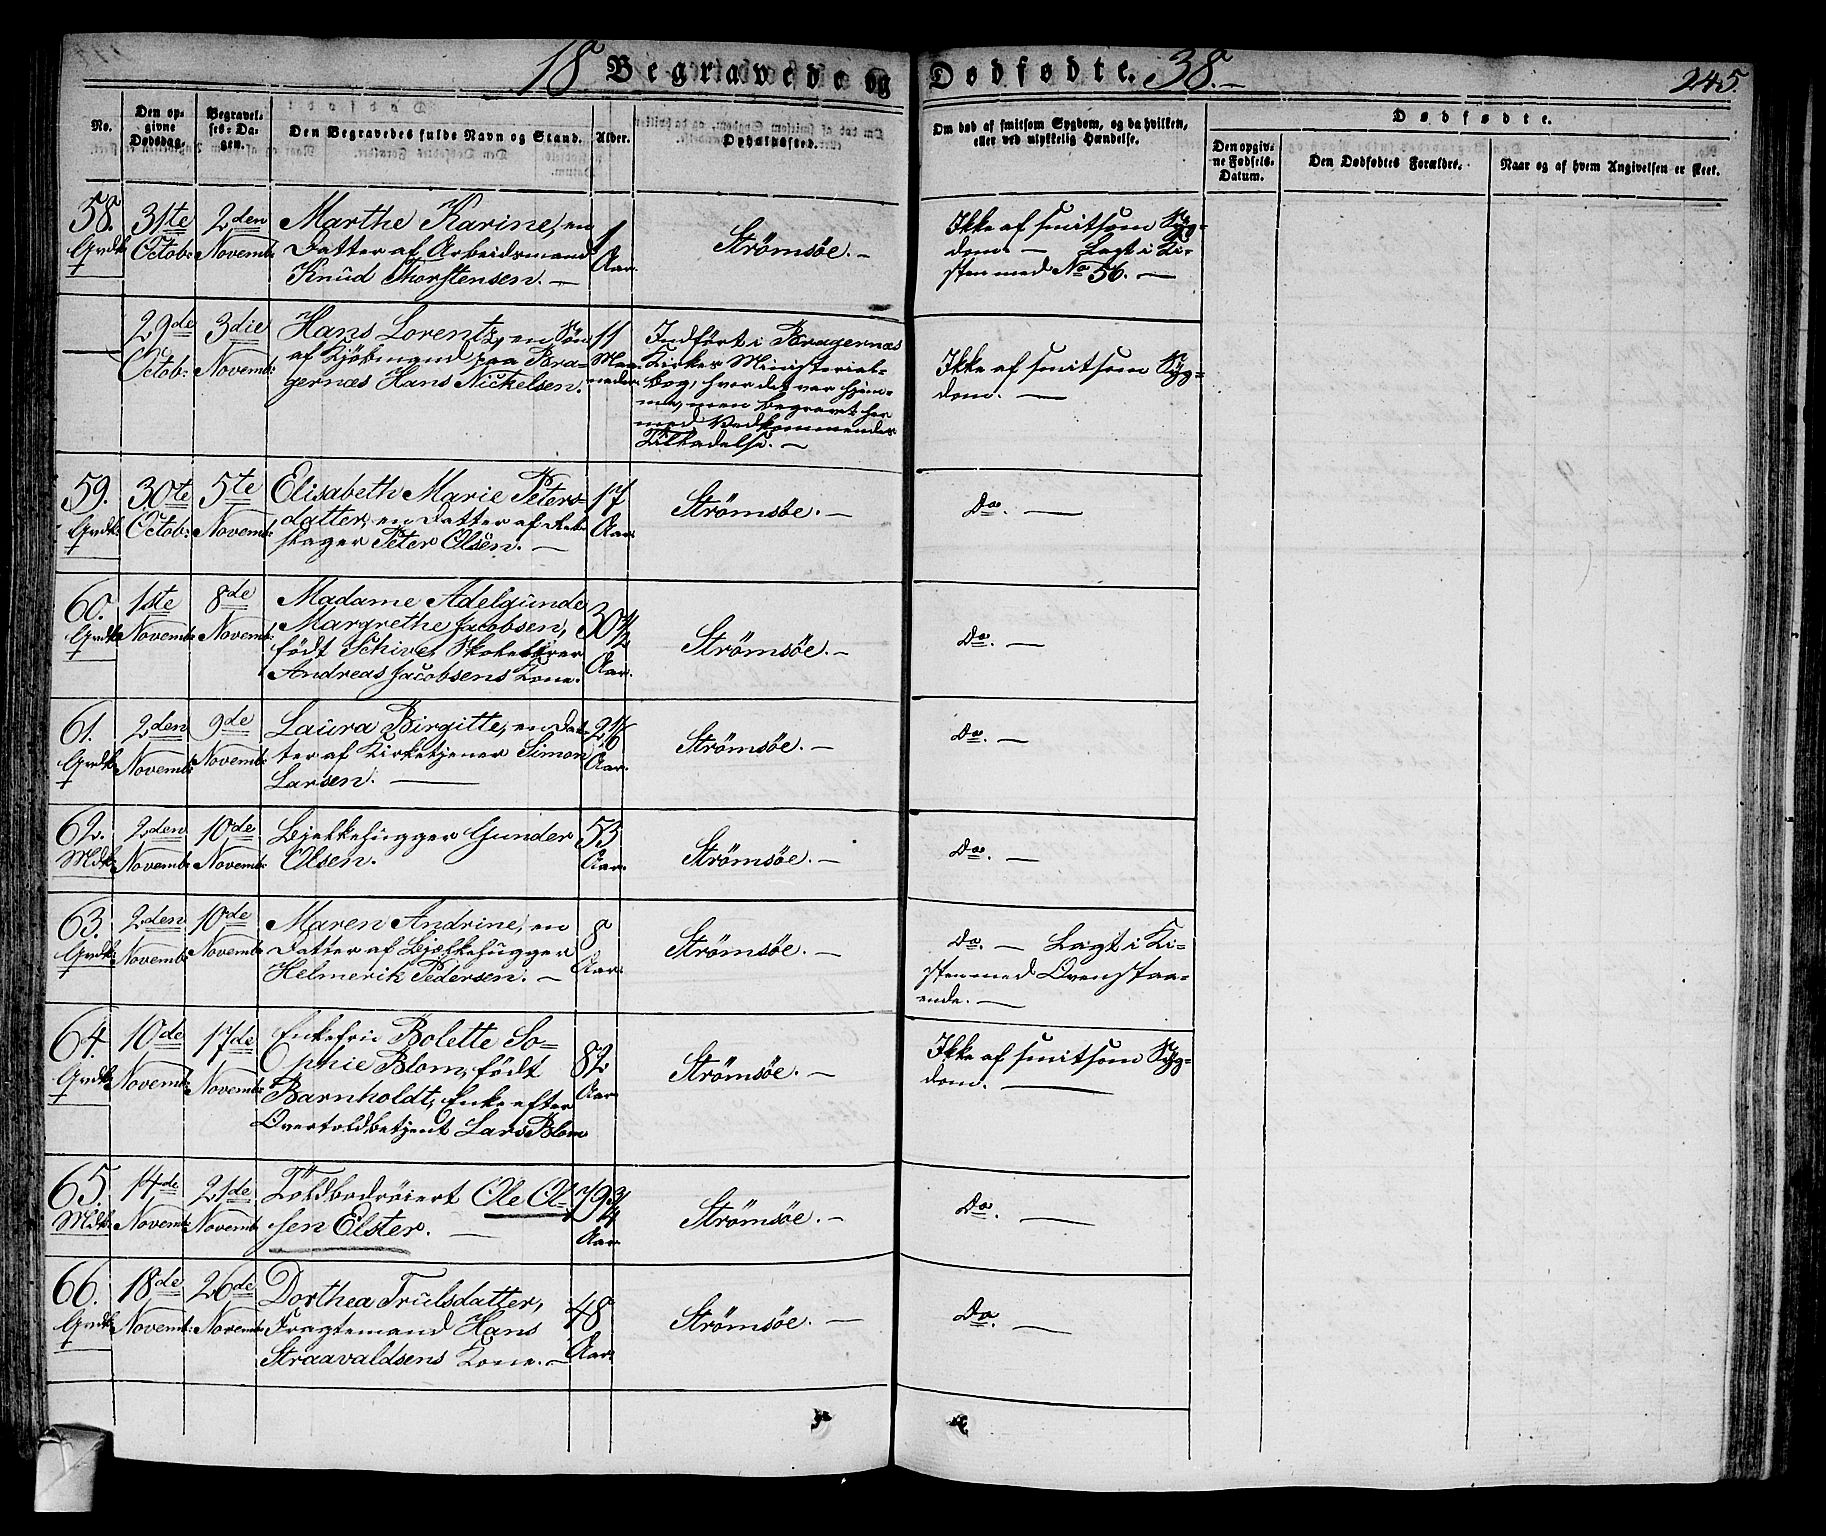 18 Begravede og Dødfødte. 38.- 245.
No.
Den opgivne Dødsdag.
Begravelses-Dagen.
Den Begravedes fulde Navn og Stand.
Alder.
Opholdssted.
Om død af smitsom Sygdom, og da hvilken,
eller ved ulykkelig Hændelse.
Dødfødte.
Den opgivne Fødsels-Datum.
Den Dødfødtes Forældre.
Naar og af hvem Angivelsen er skeet.
58. Qvdk:
31te Octob:
2den Novemb:
Marthe Karine, en
Datter af Arbeidsmand
Knud Thorstensen. —
1 Aar.
Strømsøe. —
Ikke af smitsom Syg=
dom. — Lagt i Ki-
sten med No 56. —
29de Octob:
3die Novemb:
Hans Lorentz, en Søn
af Kjøbmand paa Bra-
gernæs Hans Nickelsen.
11 Maaneder.
Indført i Bragernæs
Kirkes Ministerial-
bog, hvor det var hjem-
me, men begravet her
med Vedkommendes
Tilladelse. —
Ikke af smitsom Syg=
dom. —
59. Qvdk:
30te Octob:
5te Novemb:
Elisabeth Marie Peters-
datter, en Datter af
Peter Olsen. —
17 Aar.
Strømsøe. —
Do. —
60. Qvdk:
1ste Novemb:
8de Novemb:
Madame Adelgunde
Margrethe Jacobsen,
født Schive, Skolelærer
Andreas Jacobsens Kone.
30 1/2 Aar.
Strømsøe. —
Do. —
61. Qvdk:
2den Novemb:
9de Novemb:
Laura Birgitte, en Dat-
ter af Kirketjener Simon
Larsen. —
2 1/6 Aar.
Strømsøe. —
Do. —
62. Mdk:
2den Novemb:
10de Novemb:
Bjelkehugger Gunder
Olsen.
53 Aar.
Strømsøe. —
Do. —
63. Qvdk:
2den Novemb:
10de Novemb:
Maren Andrine, en
Datter af Bjelkehugger
Helmerik Pedersen. —
8 Aar.
Strømsøe. —
Do. — Lagt i Ki-
sten med Ovenstaa-
ende. —
64. Qvdk:
10de Novemb:
17de Novemb:
Enkefru Bolette So-
phie Blom, født
Barnholdt, Enke efter
Overtoldbetjent Lars Blom
82 Aar.
Strømsøe. —
Ikke af smitsom Syg=
dom. —
65. Mdk:
14de Novemb:
21de Novemb:
Toldbodrøiert Ole Ol-
sen Elster. —
79 3/4 Aar.
Strømsøe. —
Do. —
66. Qvdk:
18de Novemb:
26de Novemb:
Dorthea Trulsdatter,
Fragtemand Hans
Straavaldsens Kone. —
48 Aar.
Strømsøe. —
Do. —